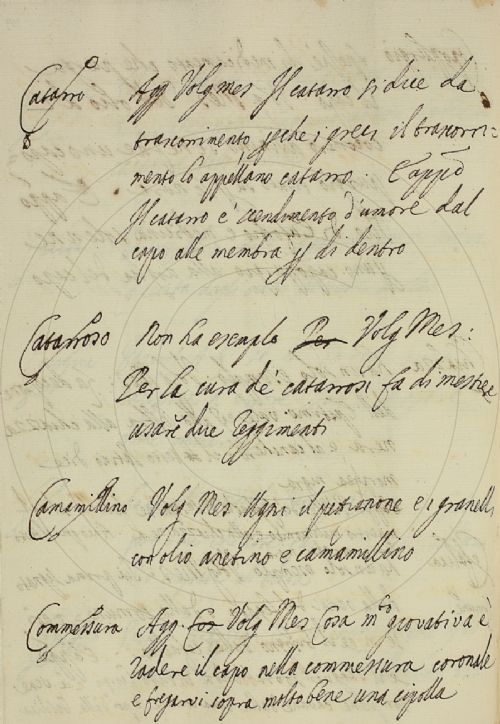 Catarro Agg Volg mes Il catarro si dice da
trascorrimento pche i greci il trascorri=
mento lo appellano catarro. E app̃o
Il catarro e' scendimento d'umore dal
capo alle membra p di dentro
Catarroso Non ha esemplo Per Volg Mes:
Per la cura de' catarrosi fa di mestiere
usare due reggimenti
Camamillino Volg Mes Ugni il petignone e i granelli
con olio anetino e camamillino
Commessura Agg Cos Volg Mes Cosa mto giovativa è
radere il capo nella commessura coronale
e fregarvi sopra molto bene una cipolla